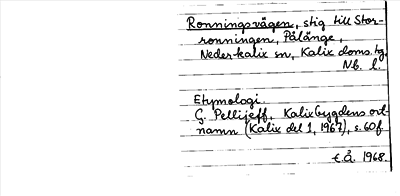 Ronningsvägen, stig till Stor-
ronningen, Pålänge,
Nederkalix sn, Kalix doms. tg,
Nb. l.
Etymologi
G. Pellijeff, Kalixbygdens ort-
namn (Kalix del 1, 1967), s. 60 f
t.å. 1968.